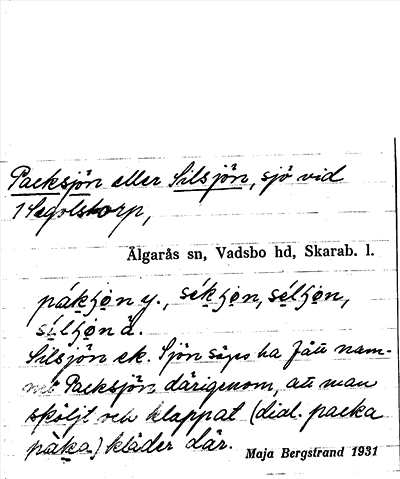 Packsjön eller Silsjön, sjö vid
1 Segolstorp,
Älgarås sn, Vadsbo hd, Skarab. l.
pákʃo̤n y., sékʃo̤n, sélʃo̤n,
sílʃo̤n ä.
Silsjön ek. Sjön säges ha fått nam-
net Packsjön därigenom, att man
sköljt och klappat (dial. packa
pàka) kläder där.
Maja Bergstrand 1931